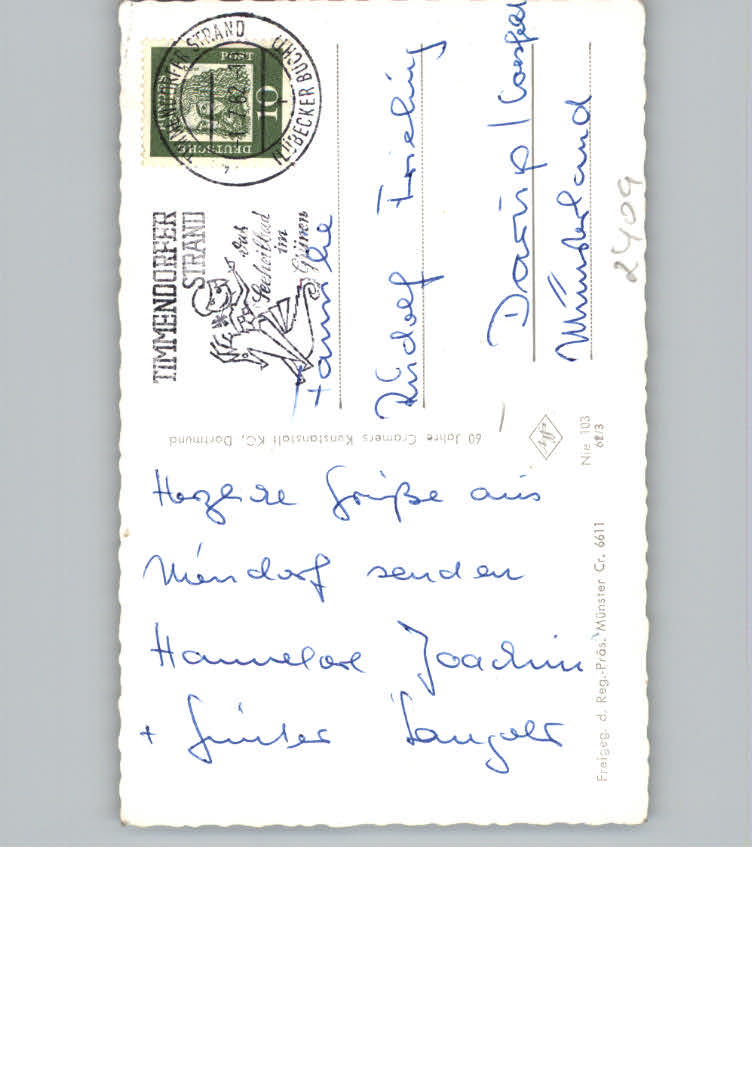 Herzliche Grüße aus
Niendorf senden
Hannelore Joachim
+ Günter
Familie
Rudolf Frieling
Darup / Coesfeld
Münsterland
2409
TIMMENDORFER
STRAND
das
Seeheilbad
im
Grünen
TIMMENDORFER STRAND
(LÜBECKER BUCHT)
62
DEUTSCHE
POST
10
60 Jahre Cramers Kunstanstalt KG, Dortmund
Nie 103
62/3
Freigeg. d. Reg.-Präs. Münster Cr. 6611